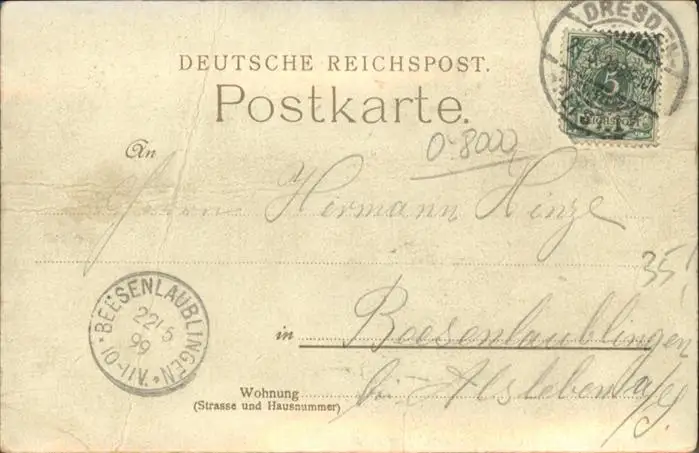 DRESDEN-
5
Reichspost
DEUTSCHE REICHSPOST.
Postkarte.
0-8000
An
Herrn Hermann Hinze
35
BEESENLAUBLINGEN
22 5
99
10-11V.
in Beesenlaublingen
Wohnung bei Alsleben a/S.
(Strasse und Hausnummer)